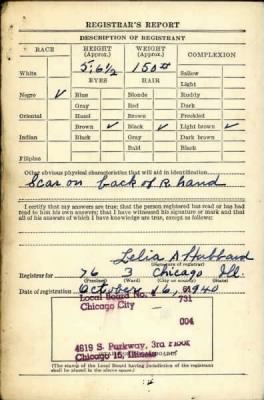 REGISTRAR'S REPORT
DESCRIPTION OF REGISTRANT
RACE HEIGHT (Approx.) WEIGHT (Approx.) COMPLEXION
White 5' 6½ 150 # Sallow
EYES HAIR Light
Negro ✓ Blue Blonde Ruddy
Gray Red Dark
Oriental Hazel Brown Freckled
Brown ✓ Black ✓ Light brown ✓
Indian Black Gray Dark brown
Bald Black
Filipino
Other obvious physical characteristics that will aid in identification
Scar on back of R. hand
I certify that my answers are true; that the person registered has read or has had
read to him his own answers; that I have witnessed his signature or mark and that
all of his answers of which I have knowledge are true, except as follows:
Lelia A Hubbard
(Signature of registrar)
Registrar for 76 3 Chicago Ill.
(Precinct) (Ward) (City or county) (State)
Date of registration October 16, 1940
Local Board No. 4 731
Chicago City
004
4619 S. Parkway, 3rd Floor
Chicago 15, Illinois
(The stamp of the Local Board having jurisdiction of the registrant
shall be placed in the above space.)